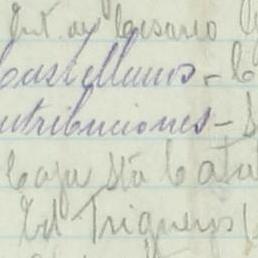 Cesareo
Castellanos -
contribuciones - S
Caja Sta Cata
Id Trigueros (